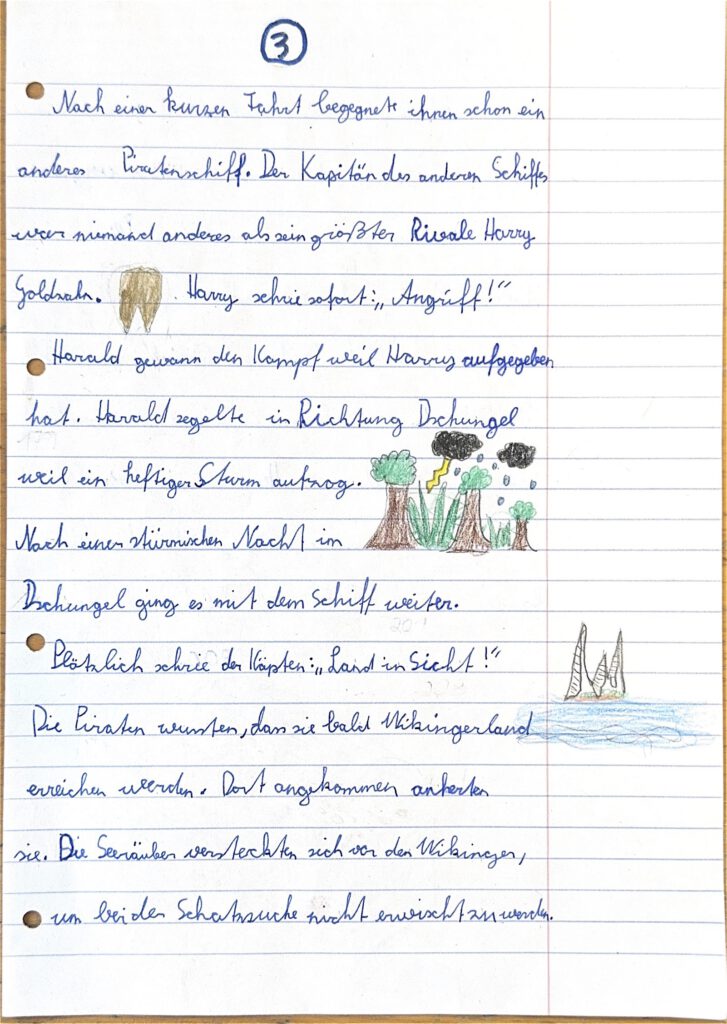 3
Nach einer kurzen Fahrt begegnete ihnen schon ein
anderes Piratenschiff. Der Kapitän des anderen Schiffes
war niemand anderes als sein größter Rivale Harry
Goldzahn. Harry schrie sofort: „Angriff!"
Harald gewann den Kampf weil Harry aufgegeben
hat. Harald segelte in Richtung Dschungel
weil ein heftiger Sturm aufzog.
Nach einer stürmischen Nacht im
Dschungel ging es mit dem Schiff weiter.
Plötzlich schrie der Käpten: „Land in Sicht!"
Die Piraten wussten, dass sie bald Wikingerland
erreichen werden. Dort angekommen ankerten
sie. Die Seeräuber versteckten sich vor den Wikinger,
um bei der Schatzsuche nicht erwischt zu werden.